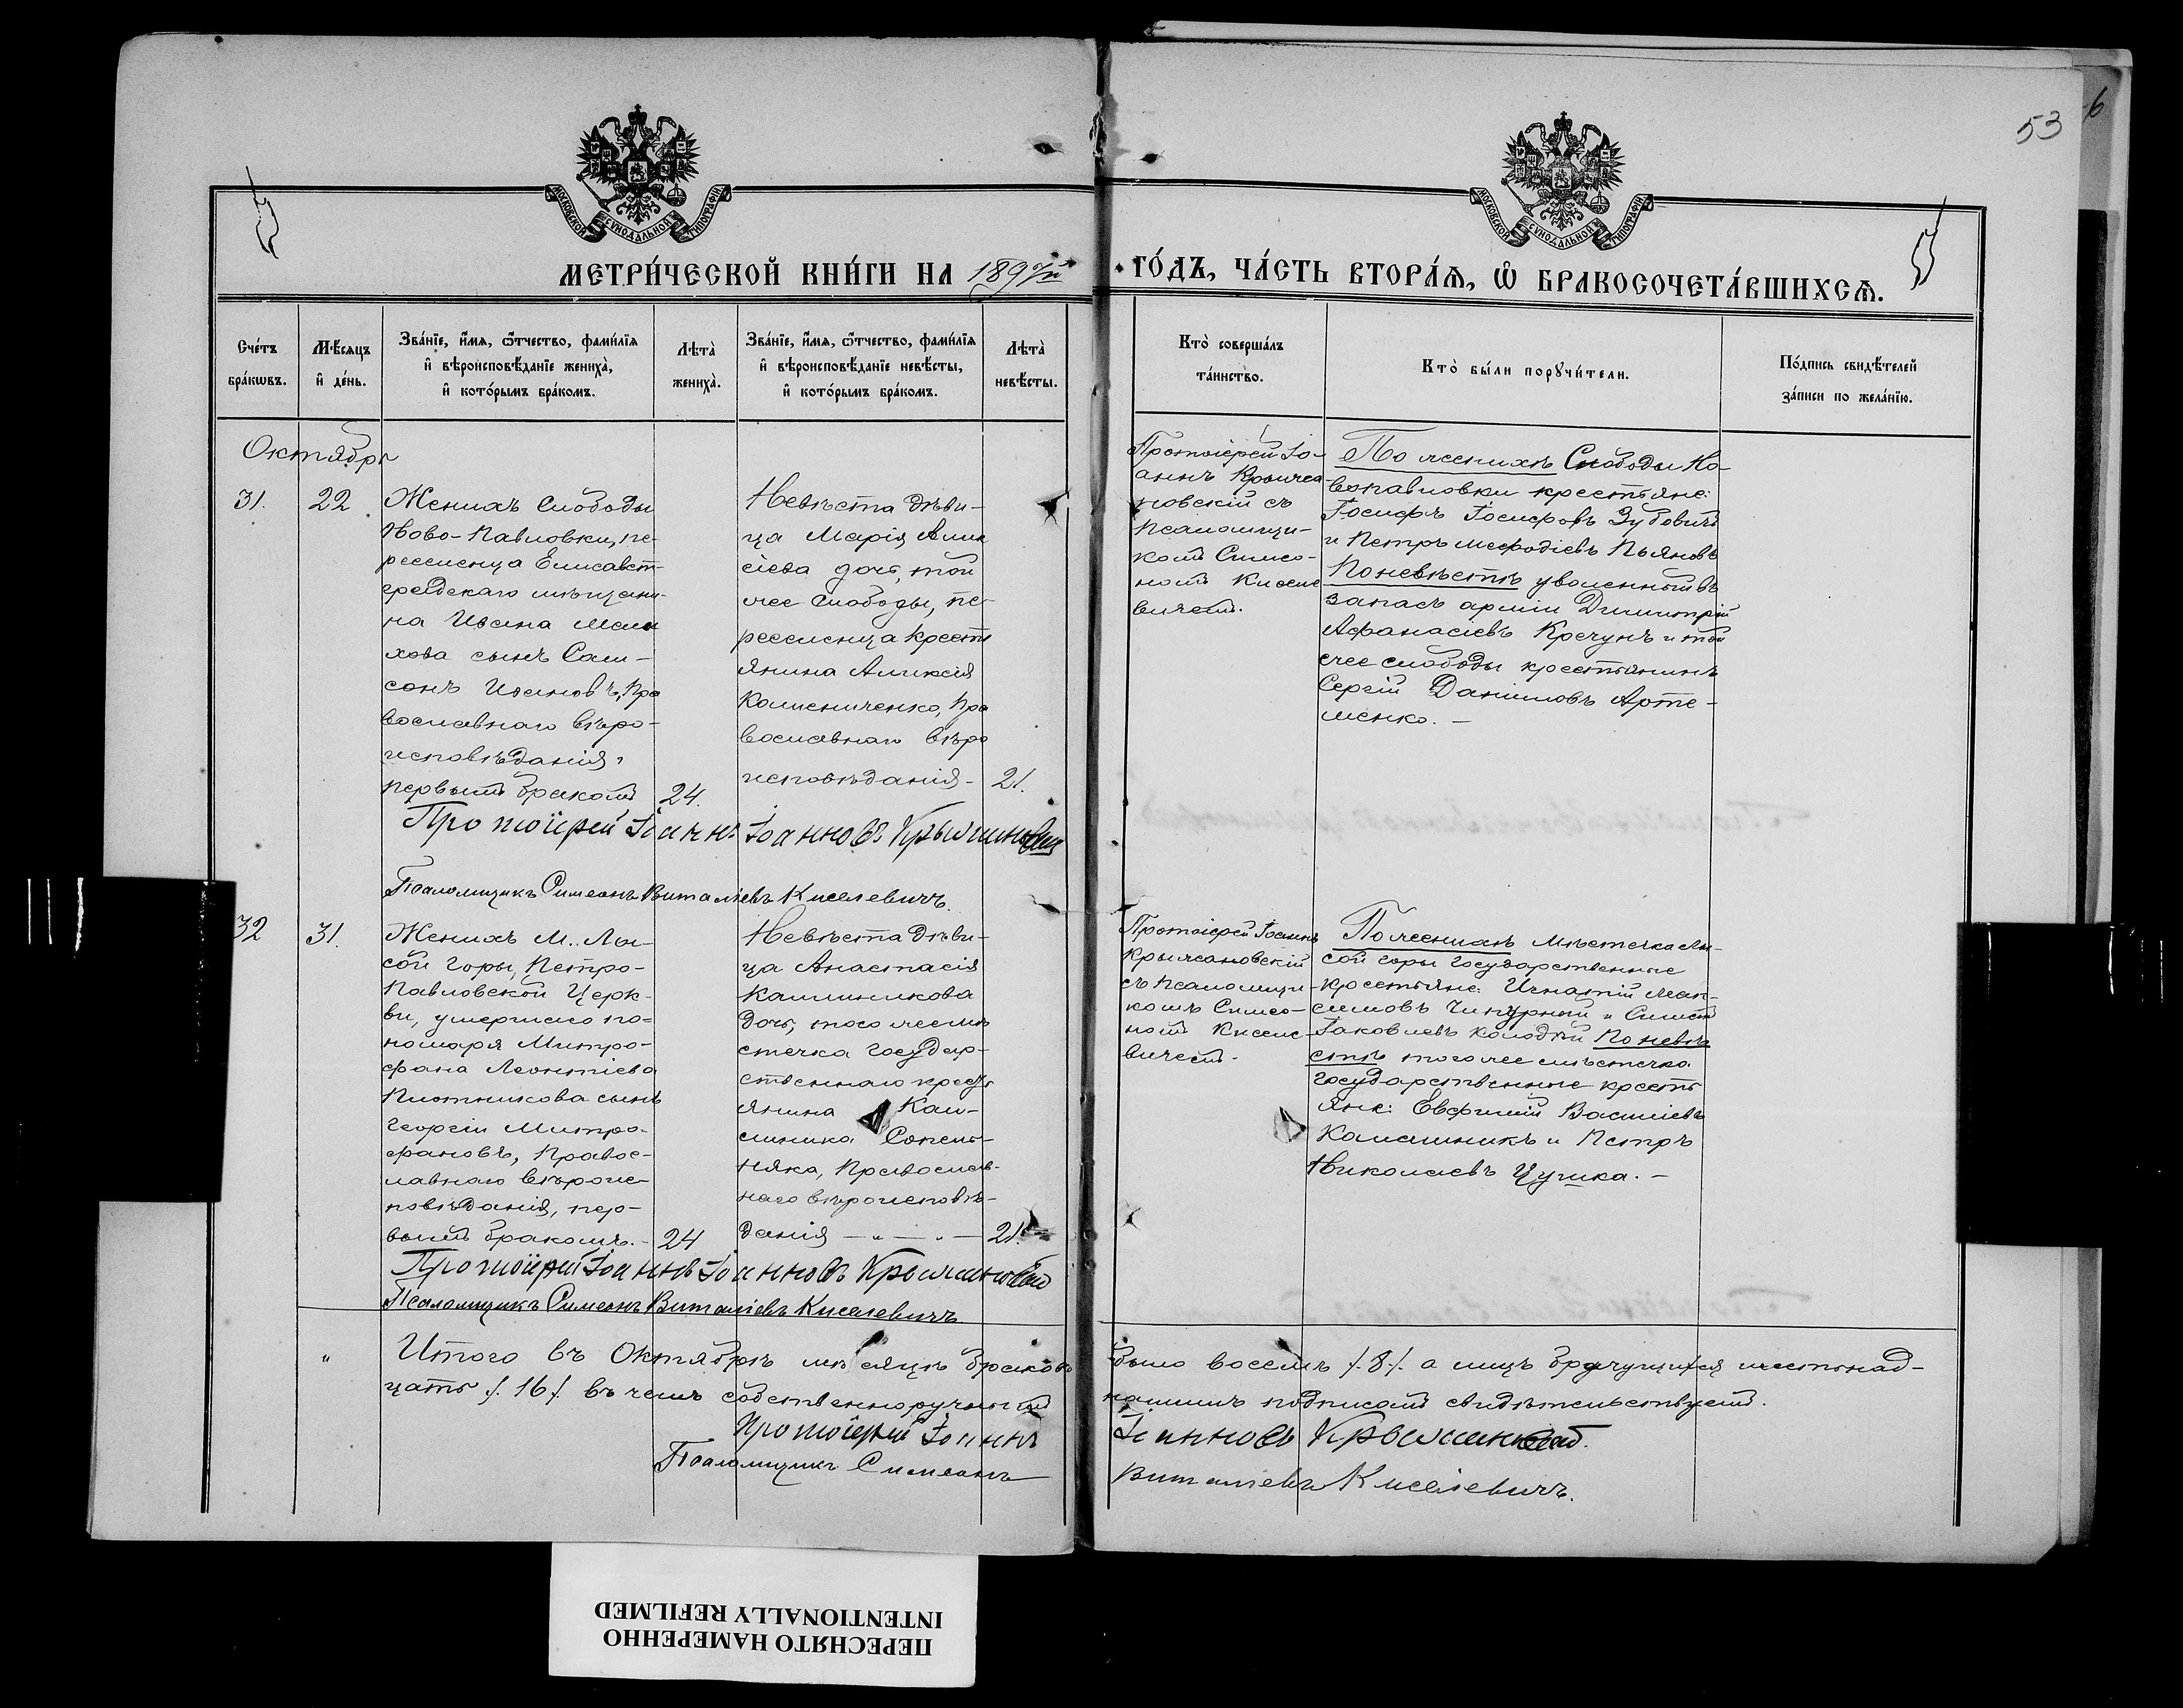 53
6
МОСКОВСКОЙ СѴНОДАЛЬНОЙ ТИПОГРАФІИ
МОСКОВСКОЙ СѴНОДАЛЬНОЙ ТИПОГРАФІИ
МЕТРИ́ЧЕСКОЙ КНИ́ГИ НА 189
ГО́ДЪ, ЧА́СТЬ ВТОРА́Ѧ, Ѽ БРАКОСОЧЕТА́ВШИХСѦ.
Сче́тъ
бра́кѡвъ.
Мѣ́сяцъ
и҆ де́нь.
Зва́нїе, и҆́мѧ, ѻ҆́тчество, фами́лїя
и҆ вѣроисповѣ́данїе жениха̀,
и҆ кото́рымъ бра́комъ.
Лѣта̀
жениха̀.
Зва́нїе, и҆́мѧ, ѻ҆́тчество, фами́лїя
и҆ вѣроисповѣ́данїе невѣ́сты,
и҆ кото́рымъ бра́комъ.
Лѣта̀
невѣ́сты.
Кто̀ соверша́лъ
та́инство.
Кто̀ бы́ли порꙋчи́тели.
По́дпись свидѣ́телей
за́писи по жела́нїю.
Октябрь
31.
22
Женихъ слободы
Ново-Павловки, пе-
реселенца Елисавет-
градскаго мѣщани-
на Ивана
хова сынъ Сам-
сонъ Ивановъ, Пра
вославнаго вѣро-
исповѣданія,
первымъ бракомъ
24.
Невѣста дѣви-
ца Марія Алек
сіева дочь, той
же слободы, пе-
реселенца кресть
янина Алексія
Каменченко, Пра
вославнаго вѣро
исповѣданія-
21.
Протоіерей Іо-
аннъ Крыжа
новскій съ
псаломщи-
комъ Симео-
номъ Киселе
вичемъ.
По женихѣ Слободы Но-
вопавловки крестьяне:
Іосифъ Іосифовъ Зубовичъ
и Петръ Мефодіевъ Пьяновъ
По невѣстѣ уволенный въ
запасъ арміи Димитрій
Афанасіевъ Кречунъ и той
же слободы крестьянинъ
Сергій Даніиловъ Арте-
менко. —
Протоіерей Іоаннъ Іоанновъ Крыжановскій
Псаломщикъ Симеонъ Виталіевъ Киселевичъ.
32
31.
Женихъ М. Лы-
сой Горы, Петро-
Павловской Церк-
ви, умершаго по-
номаря Митро-
фана Леонтіева
Плотникова сынъ
Георгій Митро-
фановъ, Правос-
лавнаго вѣроис-
повѣданія, пер-
вымъ бракомъ.-
24
Невѣста дѣви-
ца Анастасія
Каллиникова
дочь, того же мѣ
стечка государ-
ственнаго кресть
янина Кал-
линика
няка, Православ-
наго вѣроисповѣ-
данія — „ — „ —
21.
Протоіерей Іоаннъ
Крыжановскій
съ псаломщи-
комъ Симео-
номъ Киселе-
вичемъ.
По женихѣ мѣстечка Лы-
сой горы государственные
крестьяне: Игнатій Мак-
симовъ Чипурный и Симеонъ
Іаковлевъ Колодій По невѣ
стѣ того же мѣстечка
государственные кресть
яне: Евфимій Василіевъ
Калашникъ и Петръ
Николаевъ Цушка. —
Протоіерей Іоаннъ Іоанновъ Крыжановскій
Псаломщикъ Симеонъ Виталіевъ Киселевичъ
„ Итого въ Октябрѣ мѣсяцѣ браковъ было восемь /.8/. а лицъ брачущихся шестьнад-
цать /.16/. въ чемъ собственноручнымъ нашимъ подписомъ свидѣтельствуемъ.
Протоіерей Іоаннъ Іоанновъ Крыжановскій.
Псаломщикъ Симеонъ Виталіевъ Киселевичъ.
ПЕРЕСНЯТО НАМЕРЕННО
INTENTIONALLY REFILMED